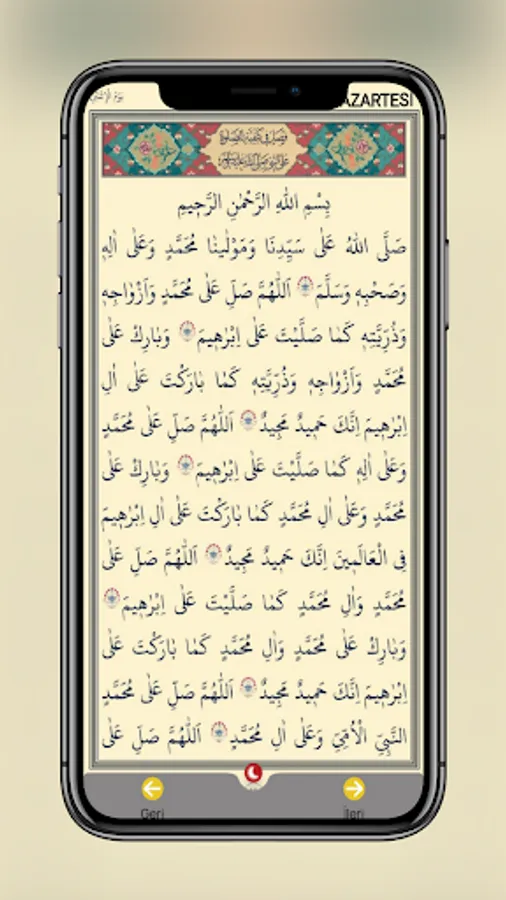 يَوْمُ الْاِثْنَيْنِ
AZARTESİ
فَصْلٌ فِي كَيْفِيَّةِ الصَّلٰوةِ
عَلَى النَّبِيِّ صَلَّى اللهُ عَلَيْهِ وَسَلَّمَ
بِسْمِ اللهِ الرَّحْمٰنِ الرَّحِيمِ
صَلَّى اللهُ عَلٰى سَيِّدِنَا وَمَوْلٰينَا مُحَمَّدٍ وَعَلٰى اٰلِهٖ
وَصَحْبِهٖ وَسَلَّمَ اَللّٰهُمَّ صَلِّ عَلٰى مُحَمَّدٍ وَاَزْوَاجِهٖ
وَذُرِّيَّتِهٖ كَمَا صَلَّيْتَ عَلٰى اِبْرٰهِيمَ وَبَارِكْ عَلٰى
مُحَمَّدٍ وَاَزْوَاجِهٖ وَذُرِّيَّتِهٖ كَمَا بَارَكْتَ عَلٰى اٰلِ
اِبْرٰهِيمَ اِنَّكَ حَمِيدٌ مَجِيدٌ اَللّٰهُمَّ صَلِّ عَلٰى مُحَمَّدٍ
وَعَلٰى اٰلِهٖ كَمَا صَلَّيْتَ عَلٰى اِبْرٰهِيمَ وَبَارِكْ عَلٰى
مُحَمَّدٍ وَعَلٰى اٰلِ مُحَمَّدٍ كَمَا بَارَكْتَ عَلٰى اٰلِ اِبْرٰهِيمَ
فِى الْعَالَمِينَ اِنَّكَ حَمِيدٌ مَجِيدٌ اَللّٰهُمَّ صَلِّ عَلٰى
مُحَمَّدٍ وَاٰلِ مُحَمَّدٍ كَمَا صَلَّيْتَ عَلٰى اِبْرٰهِيمَ
وَبَارِكْ عَلٰى مُحَمَّدٍ وَاٰلِ مُحَمَّدٍ كَمَا بَارَكْتَ عَلٰى
اِبْرٰهِيمَ اِنَّكَ حَمِيدٌ مَجِيدٌ اَللّٰهُمَّ صَلِّ عَلٰى مُحَمَّدٍ
النَّبِيِّ الْاُمِّيِّ وَعَلٰى اٰلِ مُحَمَّدٍ اَللّٰهُمَّ صَلِّ عَلٰى
Geri
İleri